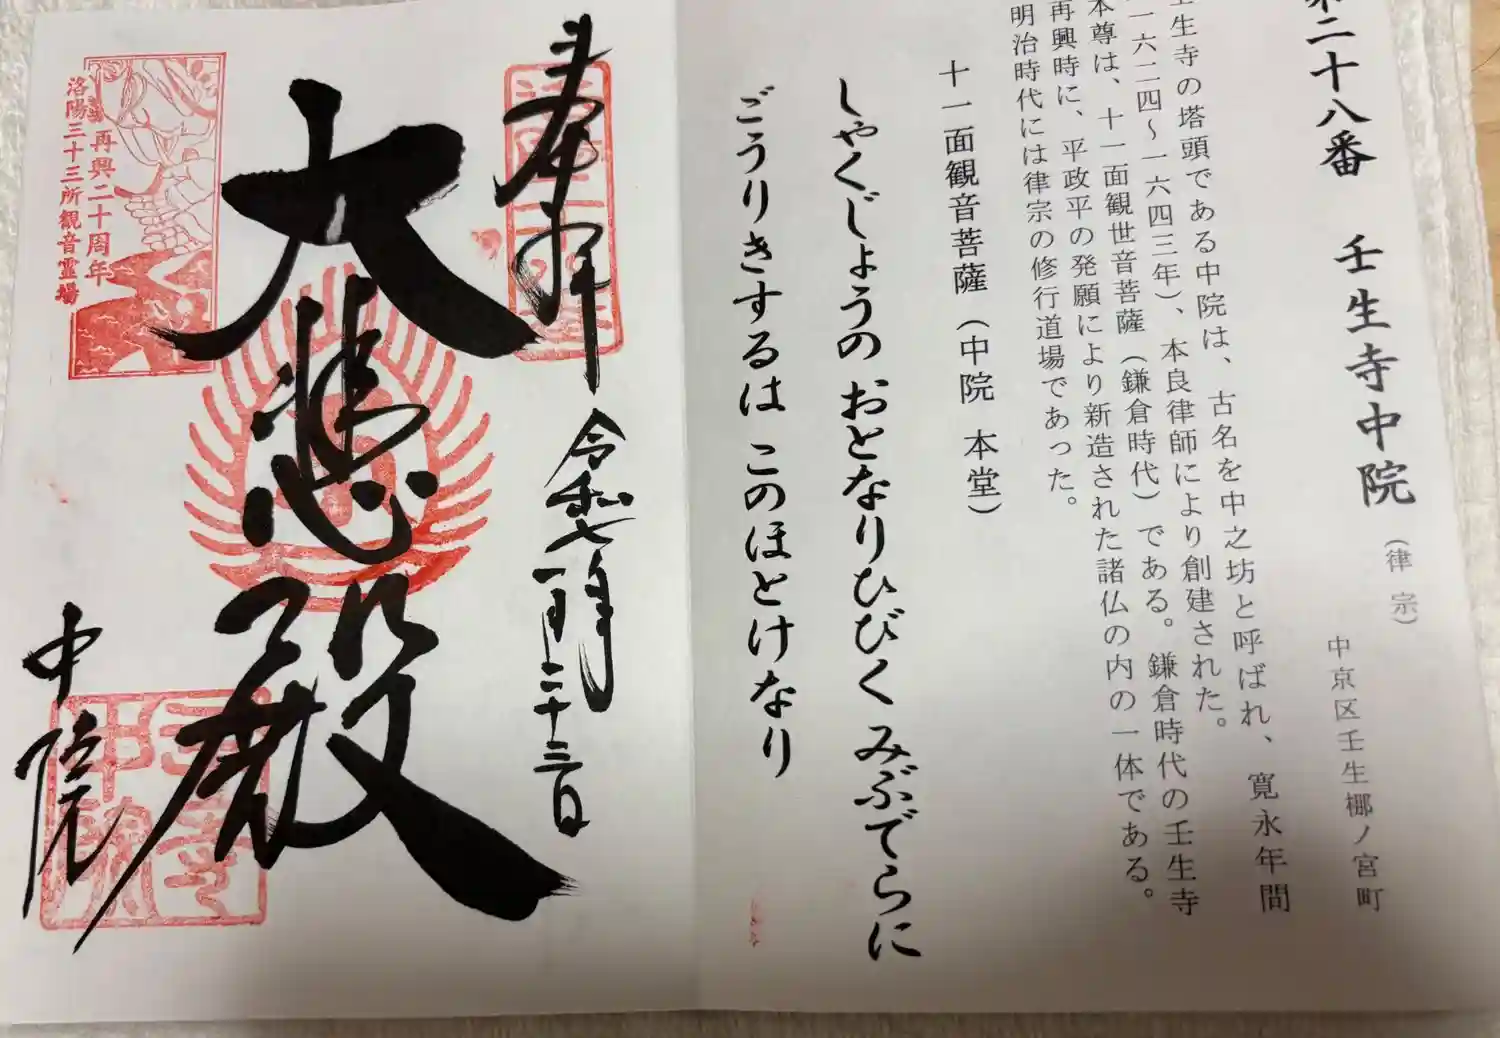 第二十八番 壬生寺中院（律宗）
中京区壬生梛ノ宮町
壬生寺の塔頭である中院は、古名を中之坊と呼ばれ、寛永年間
一六二四～一六四三年）、本良律師により創建された。
本尊は、十一面観世音菩薩（鎌倉時代）である。鎌倉時代の壬生寺
再興時に、平政平の発願により新造された諸仏の内の一体である。
明治時代には律宗の修行道場であった。
十一面観音菩薩（中院 本堂）
しゃくじょうの おとなりひびく みぶでらに
ごうりきするは このほとけなり
奉拝
令和七年 十二月二十三日
大悲殿
中院
再興二十周年
洛陽三十三所観音霊場